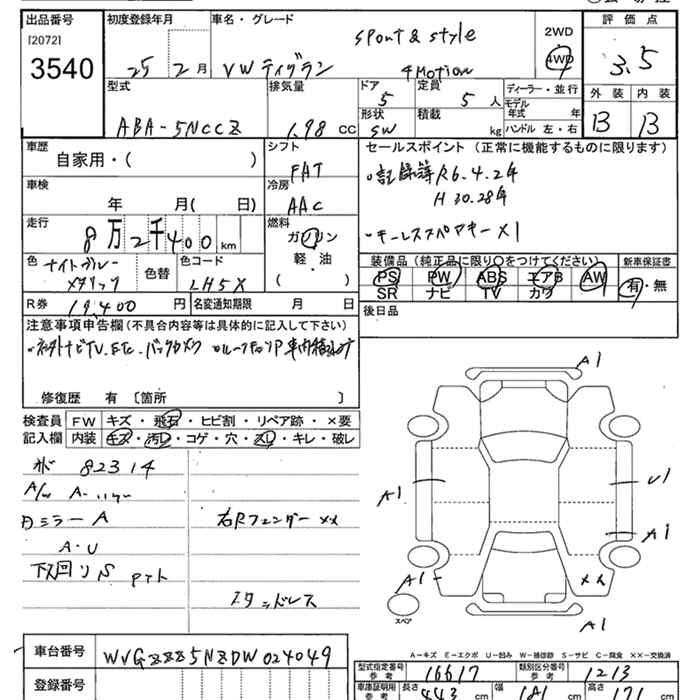 出品番号 初度登録年月 車名・グレード 評価点
[2072] Sport & style 2WD
3540 25 2 月 VW ティグアン 4Motion 4WD 3.5
型式 排気量 ドア 定員 ディーラー・並行 外装 内装
5 5 人 モデル年式 年
ABA-5NCCZ 1.98 CC 形状 積載 B B
SW kg ハンドル 左・右
車歴 シフト セールスポイント (正常に機能するものに限ります)
自家用・( ) FAT 記録簿R6.4.2年
車検 冷房 H30.28年
年 月( 日) AAC
走行 燃料 キーレススペアキー×1
8万2千400 km ガソリン
軽・油 装備品(純正品に限り○をつけてください) 新車保証書
色 ナイトブルー 色替 色コード ( ) PS PW ABS エアB AW 有・無
メタリック LH5X SR ナビ TV カワ
R券 19,400 円 名変通知期限 月 日 後日品
注意事項申告欄(不具合内容等は具体的に記入して下さい)
ナビTV.ETC.バックカメラ
修復歴 有 [箇所 ]
検査員 FW キズ・飛石・ヒビ割・リペア跡・×要
記入欄 内装 キズ・汚レ・コゲ・穴・スレ・キレ・破レ
82314 A1
A1 U1
Dミラー A 右Rフェンダー ××
A1
A・U
下回りS A1 ××
スペア
スタッドレス A1
A-キズ E-エクボ U-凹み W-補修跡 S-サビ C-腐食 ××-交換済
車台番号 WVGZZZ5NZDW024049
型式指定番号 参考 16617 類別区分番号 参考 1213
登録番号 車庫証明用 参考 長さ 443 cm 幅 181 cm 高さ 171 cm